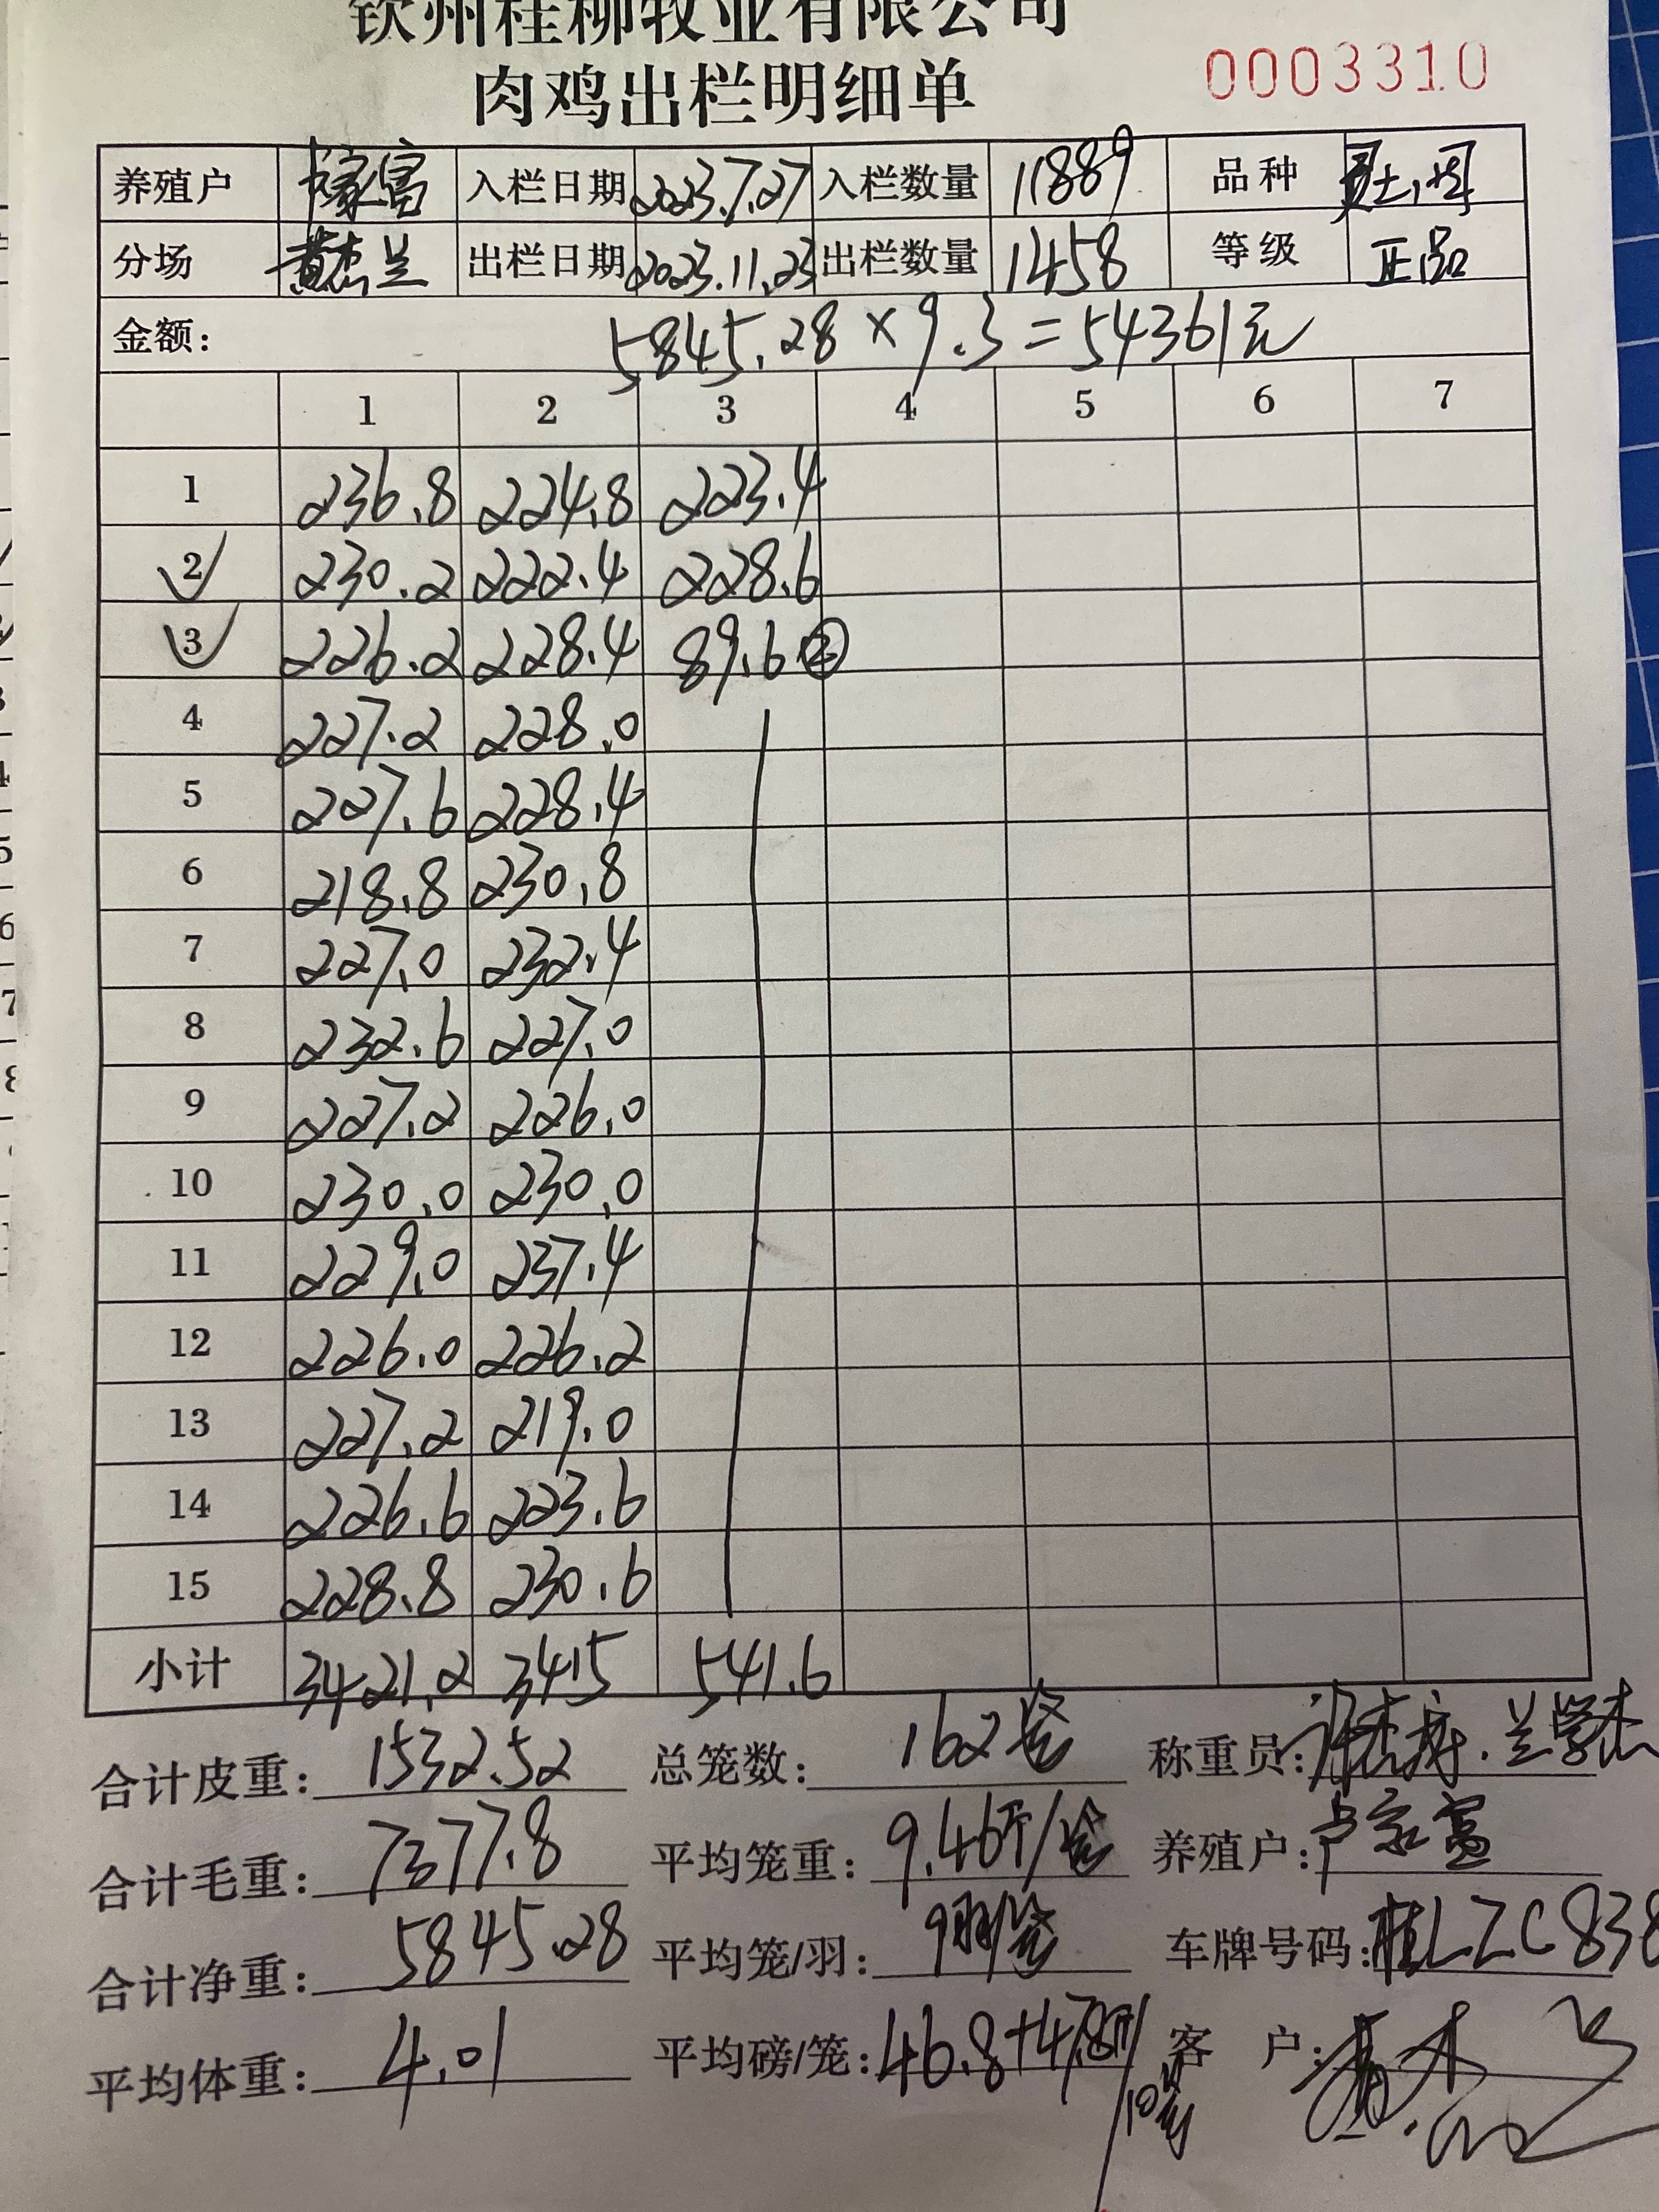 钦州桂柳牧业有限公司
肉鸡出栏明细单 0003310
养殖户 卢家富 入栏日期 2023.7.27 入栏数量 11889 品种
分场 黄杰兰 出栏日期 2023.11.23 出栏数量 1458 等级 正品
金额: 5845.28×9.3=54361元
1 2 3 4 5 6 7
1 236.8 224.8 223.4
2 230.2 222.4 228.6
3 226.2 228.4 89.6 ②
4 227.2 228.0
5 227.6 228.4
6 218.8 230.8
7 227.0 232.4
8 232.6 227.0
9 227.2 226.0
10 230.0 230.0
11 229.0 237.4
12 226.0 226.2
13 227.2 219.0
14 226.6 223.6
15 228.8 230.6
小计 3421.2 3415 541.6
合计皮重: 1532.52 总笼数: 162笼 称重员: 兰学杰
合计毛重: 7377.8 平均笼重: 9.46斤/笼 养殖户: 卢家富
合计净重: 5845.28 平均笼/羽: 9羽/笼 车牌号码: 桂LZC838
平均体重: 4.01 平均磅/笼: 46.8+47.8斤/10笼 客 户: